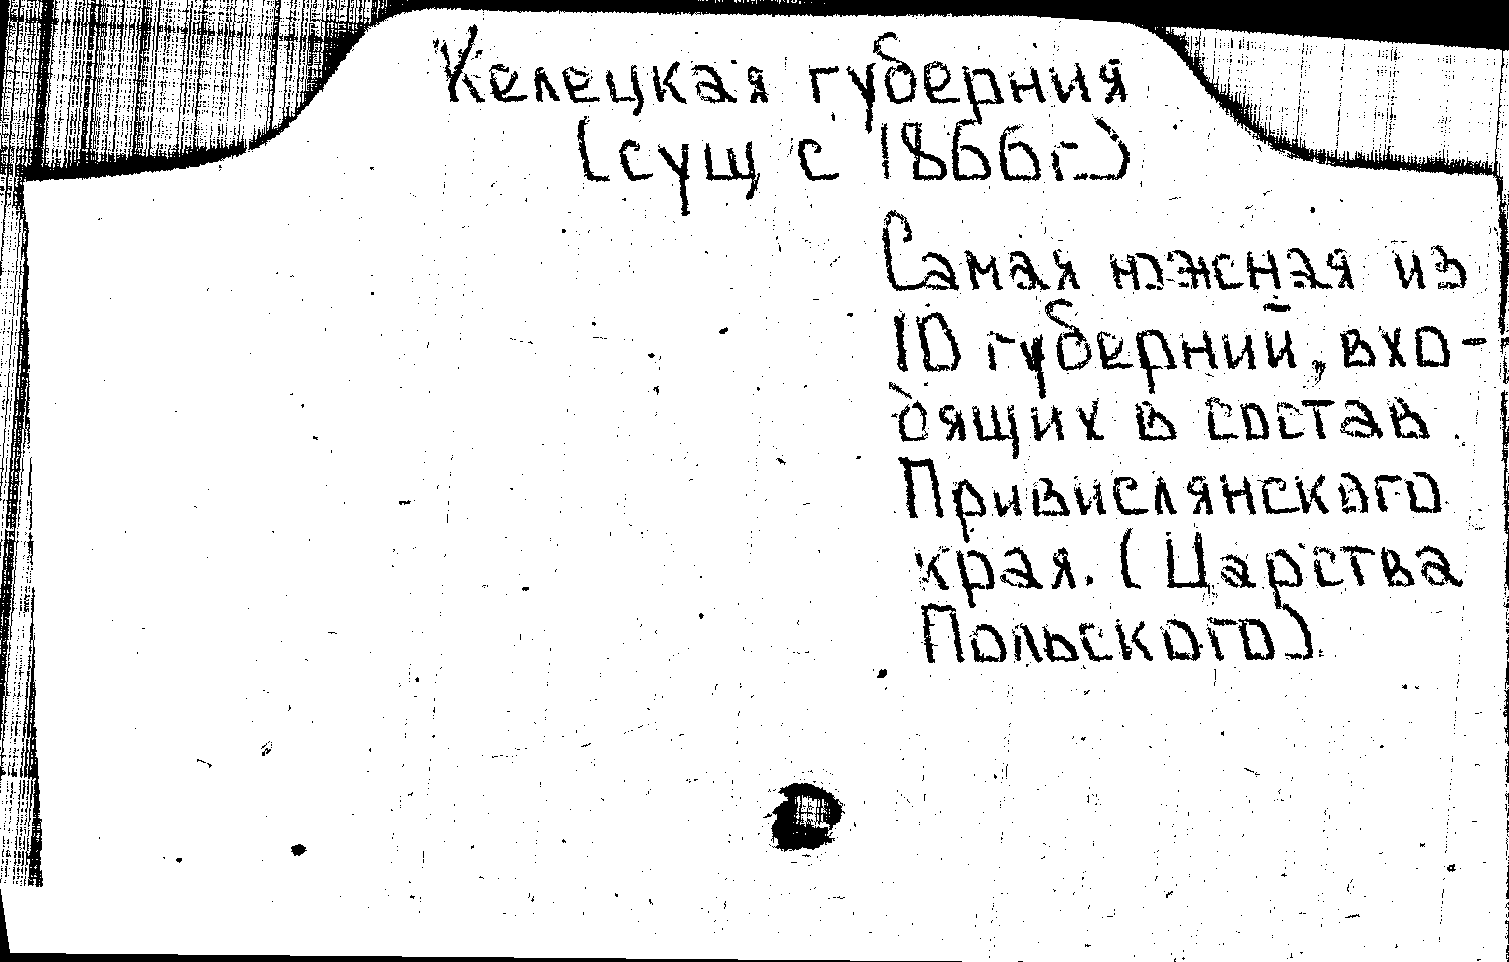 Келецкая губерния
(сущ с 1866г.)
Самая южная из
10 губерний, вхо-
дящих в состав
Привислянского
края. (Царства
Польского)